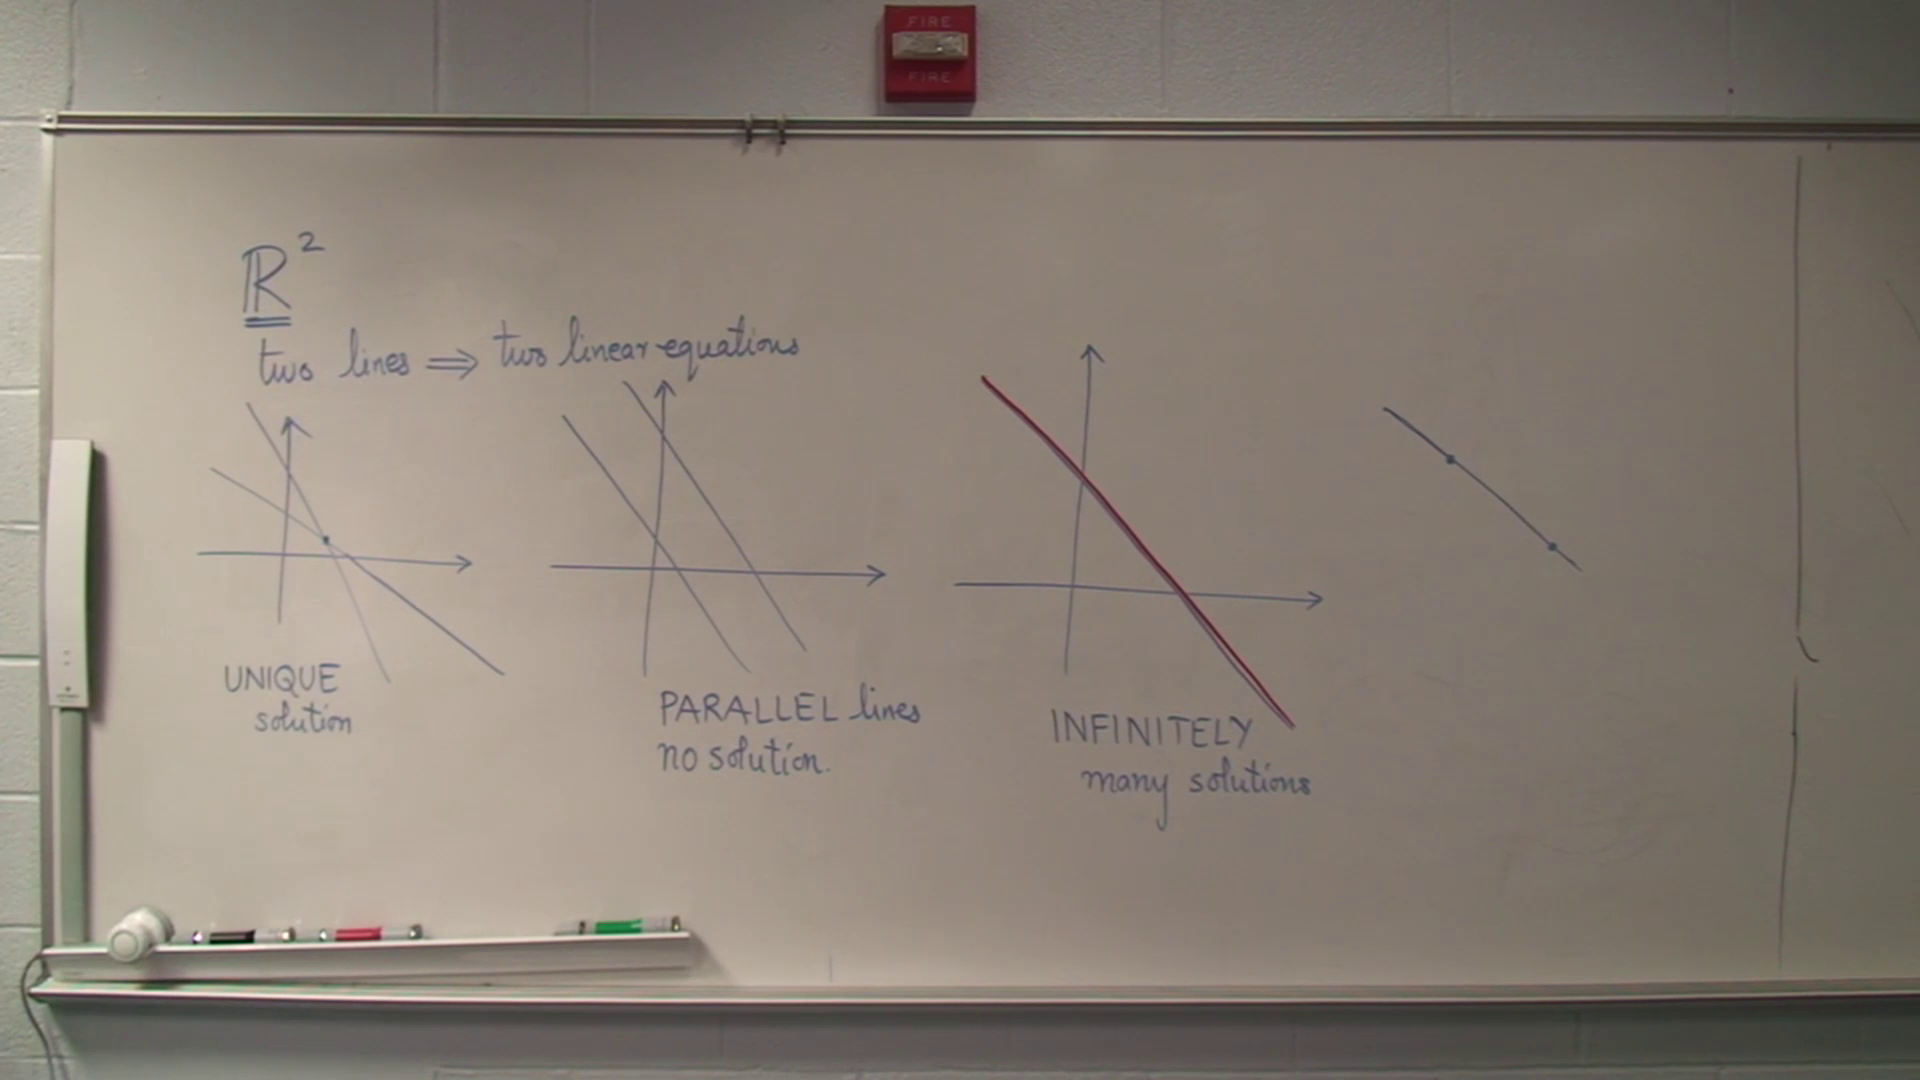 FIRE
FIRE
ℝ²
two lines ⇒ two linear equations
UNIQUE
solution
PARALLEL lines
no solution.
INFINITELY
many solutions